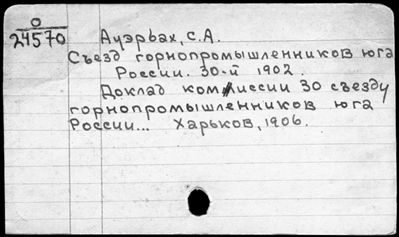 О
24570
Ауэрбах, С.А.
Съезд горнопромышленников юга
России. 30-й 1902.
Доклад комиссии 30 съезду
горнопромышленников юга
России... Харьков, 1906.